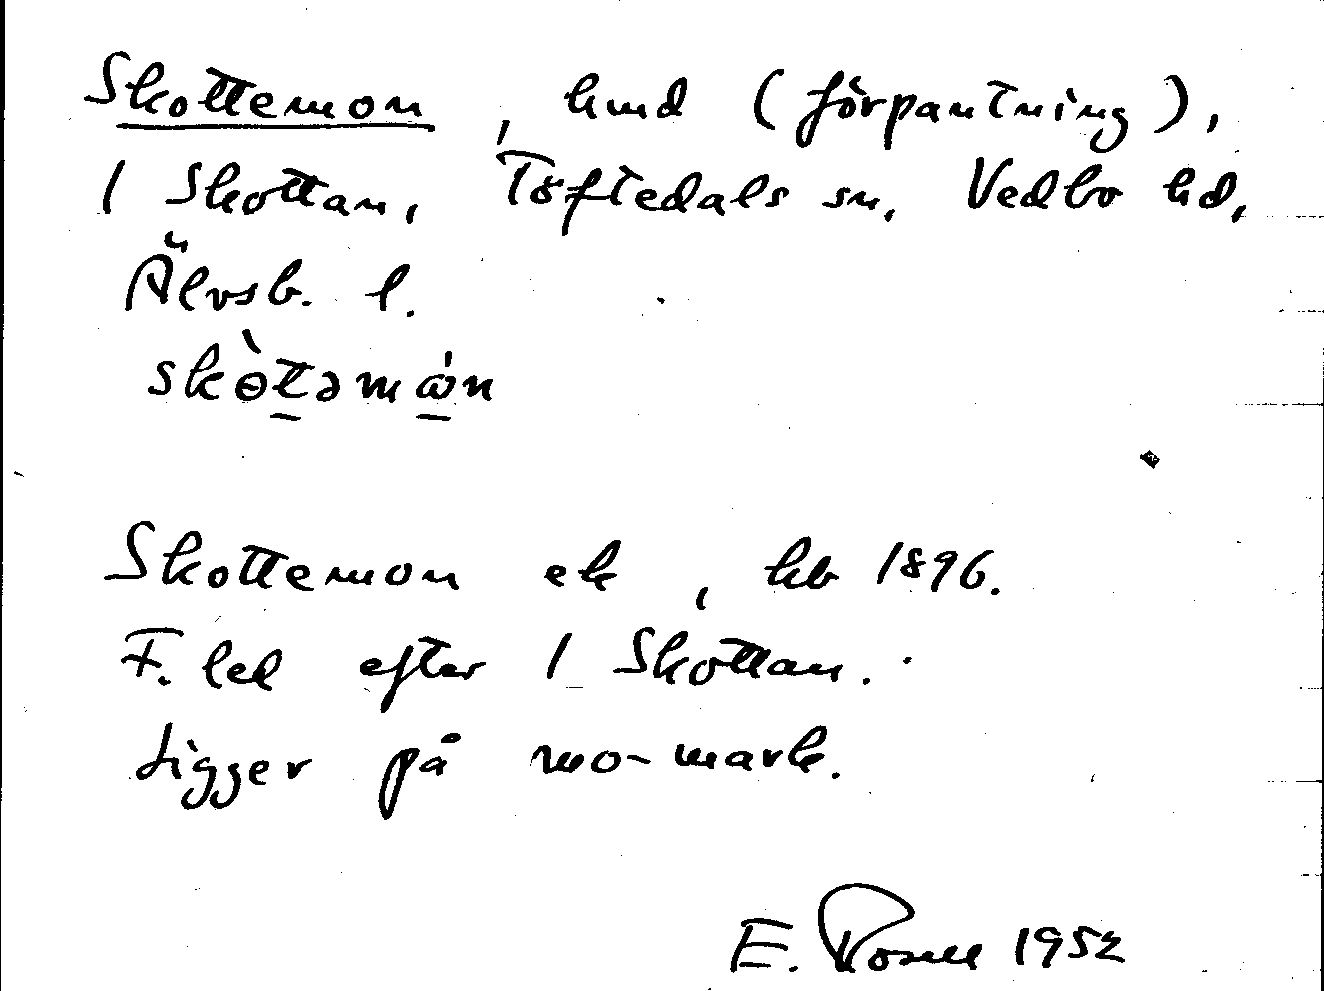 Skottemon, hmd (förpantning),
1 Skottan, Töftedals sn, Vedbo hd,
Älvsb. l.
skòtəmώn
Skottemon ek, hb 1896.
F. led efter 1 Skottan.
Ligger på mo-mark.
E. Rosell 1952